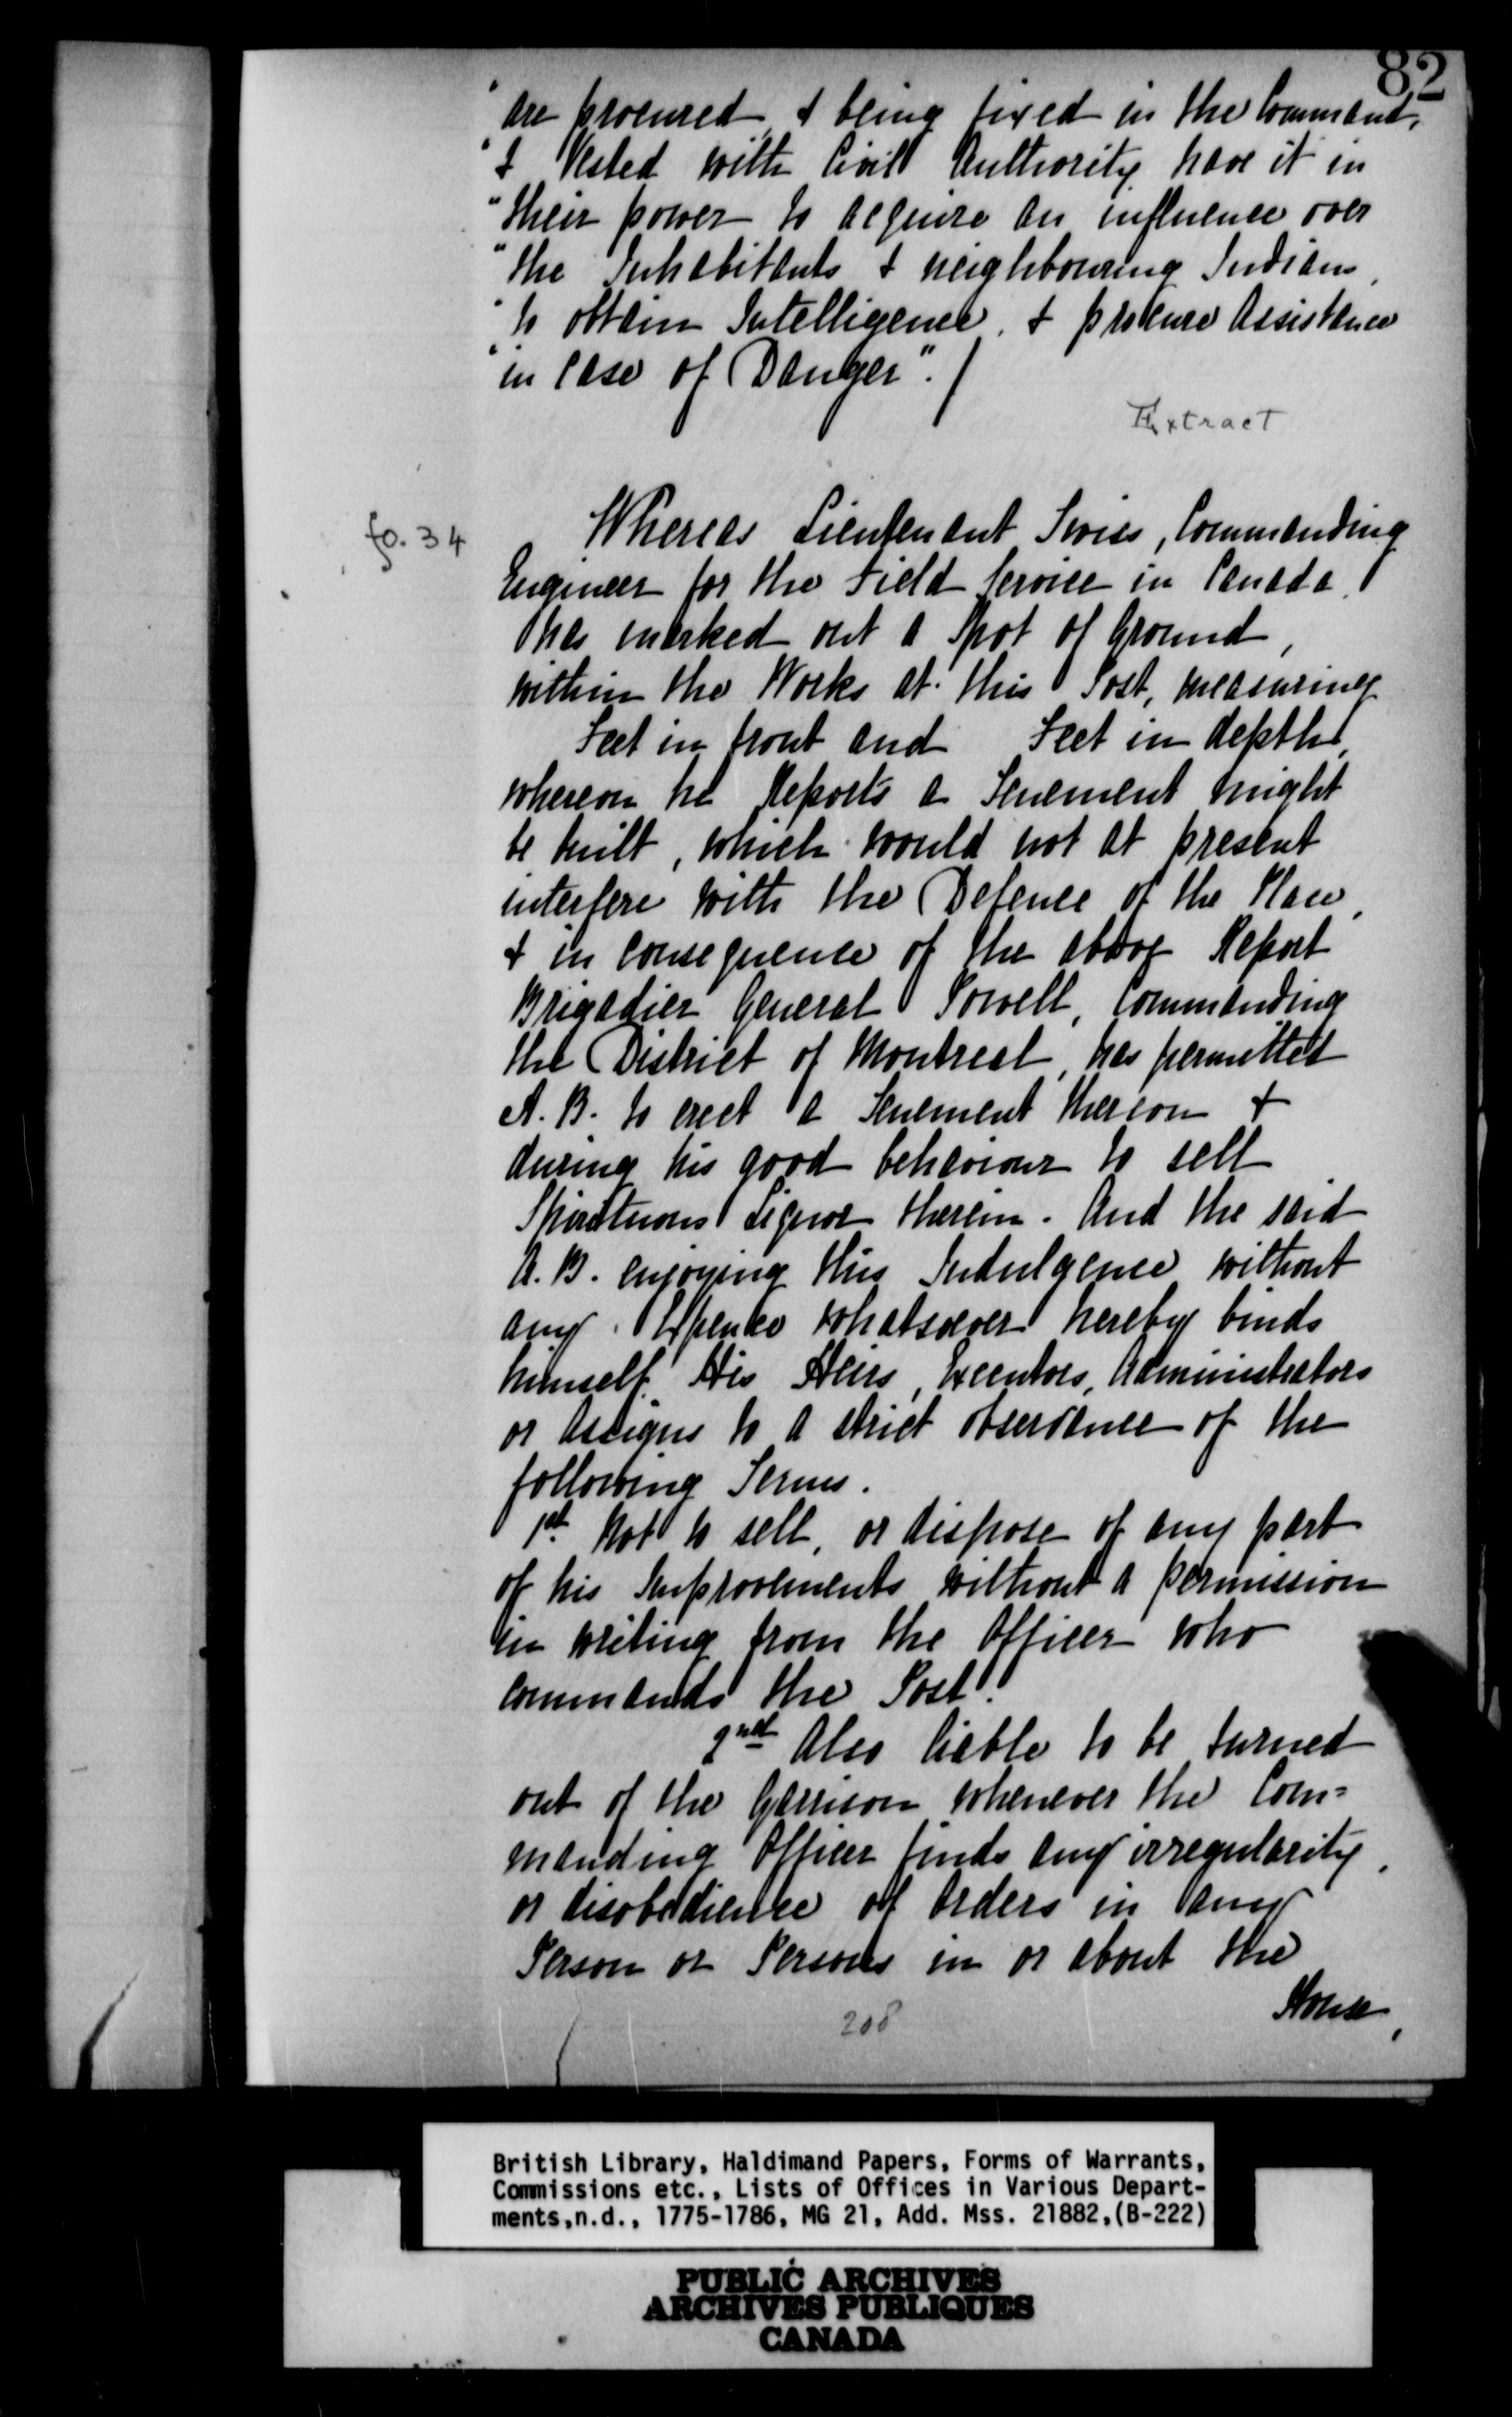 82
"are procured, & being fixed in the Command,
"& Vested with Civil Authority have it in
"their power to acquire an influence over
"the Inhabitants & neighbouring Indians,
"to obtain Intelligence, & procure Assistance
"in case of Danger"./
Extract
fo. 34
Whereas Lieutenant Twiss, Commanding
Engineer for the Field Service in Canada,
has marked out a Spot of Ground,
within the Works at this Post, measuring
Feet in front and Feet in depth,
whereon he Reports a Tenement might
be built, which would not at present
interfere with the Defence of the Place,
& in consequence of the above Report
Brigadier General Powell, commanding
the District of Montreal, has permitted
A. B. to erect a Tenement thereon &
during his good behaviour to sell
Spirituous Liquor therein. And the said
A. B. enjoying this Indulgence without
any Expence whatsoever hereby binds
himself, His Heirs, Executors, Administrators
or Assigns to a strict observance of the
following Terms.
1st Not to sell, or dispose of any part
of his Improvements without a permission
in writing from the Officer who
commands the Post.
2nd Also liable to be turned
out of the Garrison whenever the Com=
manding Officer finds any irregularity,
or disobedience of Orders in any
Person or Persons in or about the
House,
208
British Library, Haldimand Papers, Forms of Warrants,
Commissions etc., Lists of Offices in Various Depart-
ments,n.d., 1775-1786, MG 21, Add. Mss. 21882,(B-222)
PUBLIC ARCHIVES
ARCHIVES PUBLIQUES
CANADA